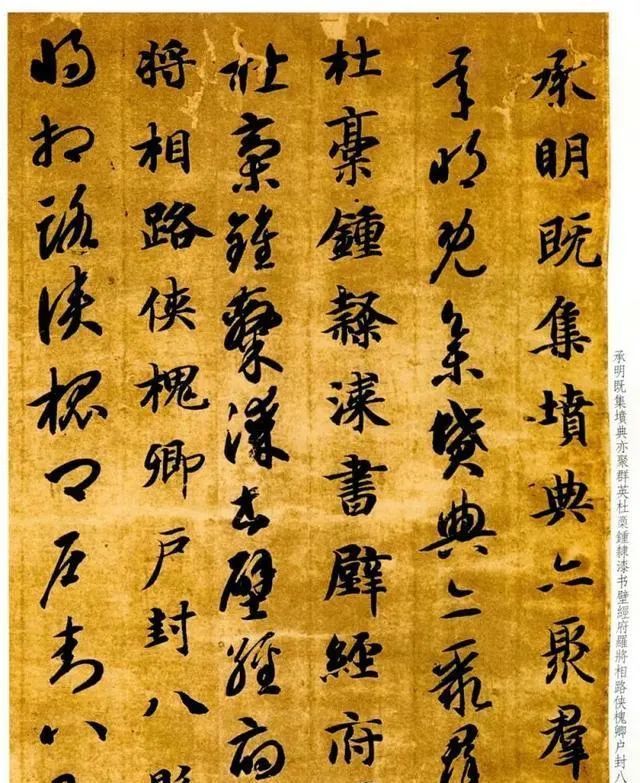 承明既集墳典亦聚羣
承明既集墳典亦聚羣
杜稾鍾隸漆書壁經府
杜稾鍾隸漆書壁經府
將相路俠槐卿戶封八縣
將相路俠槐卿戶封八
承明既集墳典亦聚群英杜稾鍾隸漆书壁經府羅將相路侠槐卿户封八